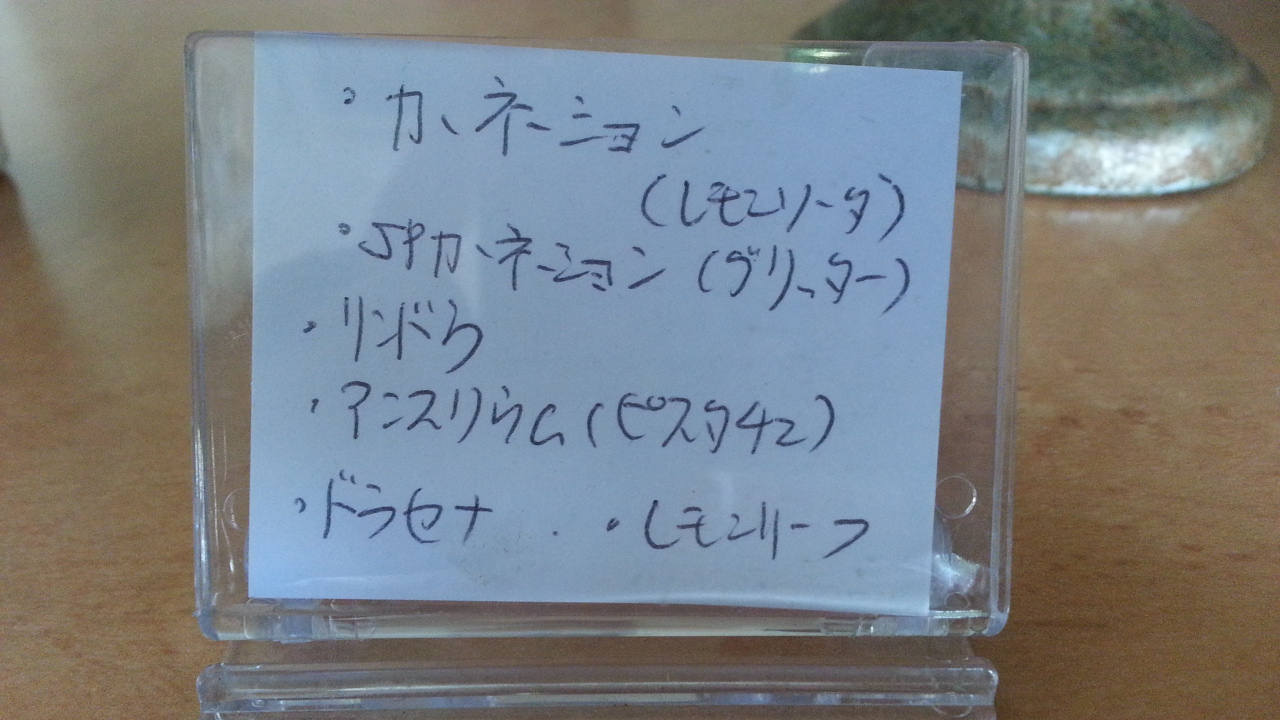 ・カーネーション
(レモンリータ)
・SPカーネーション(グリッター)
・リンドウ
・アンスリウム(ピスタチェ)
・ドラセナ ・レモンリーフ